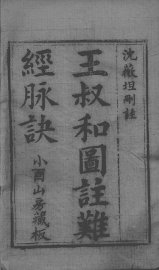 沈薇垣刪註
王叔和圖註難
經脉訣
小酉山房藏板